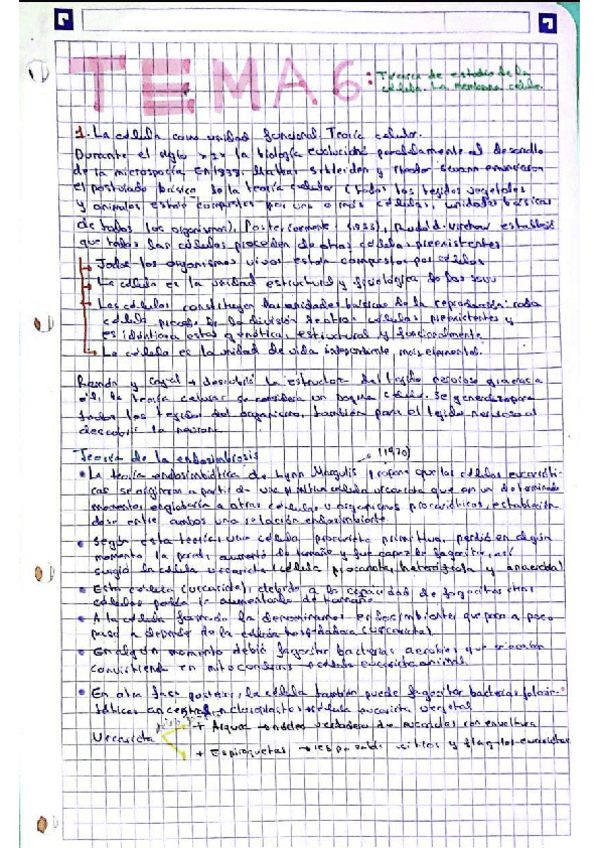 TEMA 6: Técnica de estudio de la
célula. La membrana celular.
1. La célula como unidad funcional. Teoría celular.
Durante el siglo XIX la biología evolucionó paralelamente al desarrollo
de la microscopía. En Mathias Schleiden y Theodor Swann enunciaron
el postulado básico de la teoría celular (todos los tejidos vegetales
y animales están compuestos por una o más células, unidades básicas
de todos los organismos). Posteriormente (1855), Rudolf Virchow estableció
que todas las células proceden de otras células preexistentes
Todos los organismos vivos están compuestos por células
La célula es la unidad estructural y fisiológica de los
Las células constituyen las unidades básicas de la reproducción: cada
célula procede de la división de otras células preexistentes y
es idéntica a estas genética, estructural y funcionalmente.
La célula es la unidad de vida independiente más elemental.
Ramón y Cajal → descubrió la estructura del tejido nervioso gracias a
él, la teoría celular se considera un Se generaliza para
todos los tejidos del organismo, también para el tejido nervioso al
descubrir la neurona
Teoría de la endosimbiosis
(1970)
• La teoría endosimbiótica de Lynn Margulis propone que las células eucarióti-
cas se originaron a partir de una primitiva célula urcariota que en un determinado
momento englobaría a otras células u organismos procarióticos, establecién
dose entre ambos una relación endosimbionte.
• Según esta teoría, una célula procariota primitiva, perdió en algún
momento la pared, aumentó de tamaño y fue capaz de fagocitar, así
surgió la célula urcariota (célula procariota, heterótrofa y anaerobia)
• Esta célula (urcariota), debido a la capacidad de fagocitar otras
células podía ir aumentando de tamaño
• A la célula la denominamos endosimbionte, que poco a poco
pasó a depender de la célula hospedadora (urcariota).
• En algún momento debió fagocitar bacterias aerobias que se
convirtiendo en mitocondrias → célula eucariota animal.
• En otra fase posterior, la célula también puede fagocitar bacterias fotosin-
téticas ancestral → cloroplastos → célula eucariota vegetal
+ Arquea → núcleo verdadero de eucariotas con envoltura
Urcariota
+ Espiroquetas → responsable cilios y flagelos eucariotas